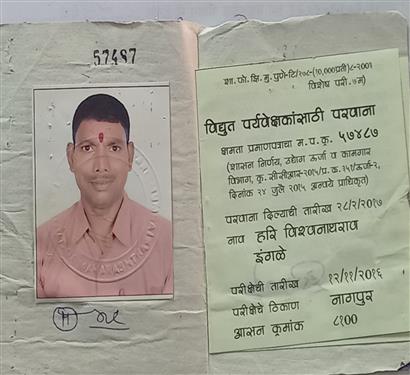 57487
शा. फो. झिं. मु. पुणे-टि/२०८-(१०,०००प्रती) ८-२००१
विशेष परी. ७म)
विद्युत पर्यवेक्षकांसाठी परवाना
क्षमता प्रमाणपत्राचा म.प.क्र. ५७४८७
(शासन निर्णय, उद्योग ऊर्जा व कामगार
विभाग, क्र. सीसीआर-२०१५/प्र.क. २५१/ऊर्जा-२,
दिनांक २४ जुलै २०१५ अन्वये प्राधिकृत)
परवाना दिल्याची तारीख २८/२/२०१७
नाव हरि विश्वनाथराव
इंगळे
परीक्षेची तारीख १२/११/२०१६
परीक्षेचे ठिकाण नागपुर
आसन क्रमांक ८१००